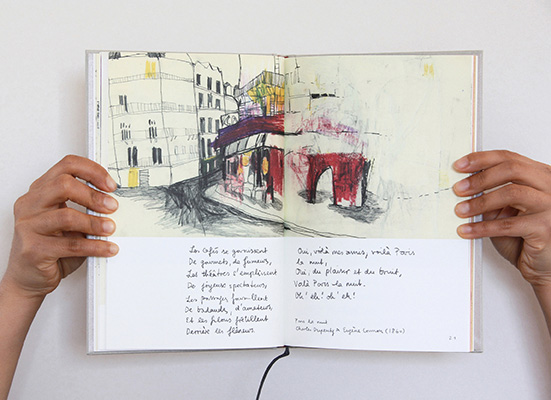 Les cafés se garnissent
De gourmets, de fumeurs,
Les théâtres s'emplissent
De joyeux spectateurs,
Les passages fourmillent
De badauds, d'amateurs,
Et les filous frétillent
Derrière les flâneurs.
Oui, voilà mes amis, voilà Paris
la nuit,
Oui, du plaisir et du bruit,
Voilà Paris la nuit.
Oh! eh! oh! eh!
Paris la nuit
Charles Dupeuty & Eugène Cormon (1842)